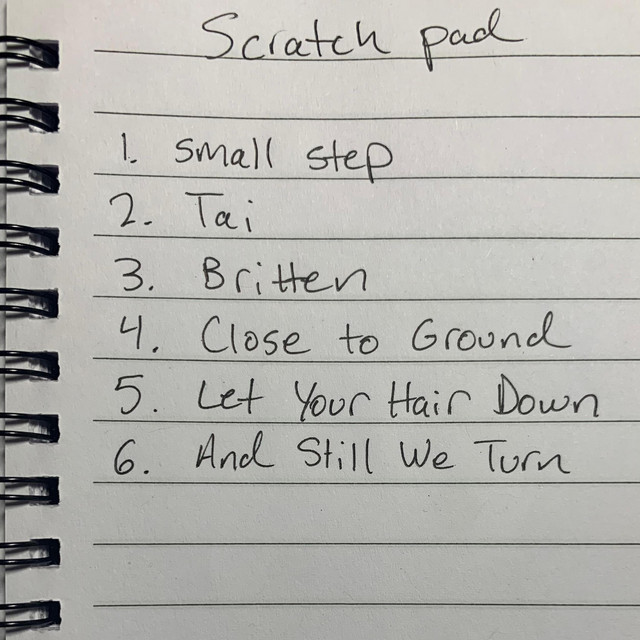 Scratch pad
1. small step
2. Tai
3. Britten
4. Close to Ground
5. Let Your Hair Down
6. And Still We Turn